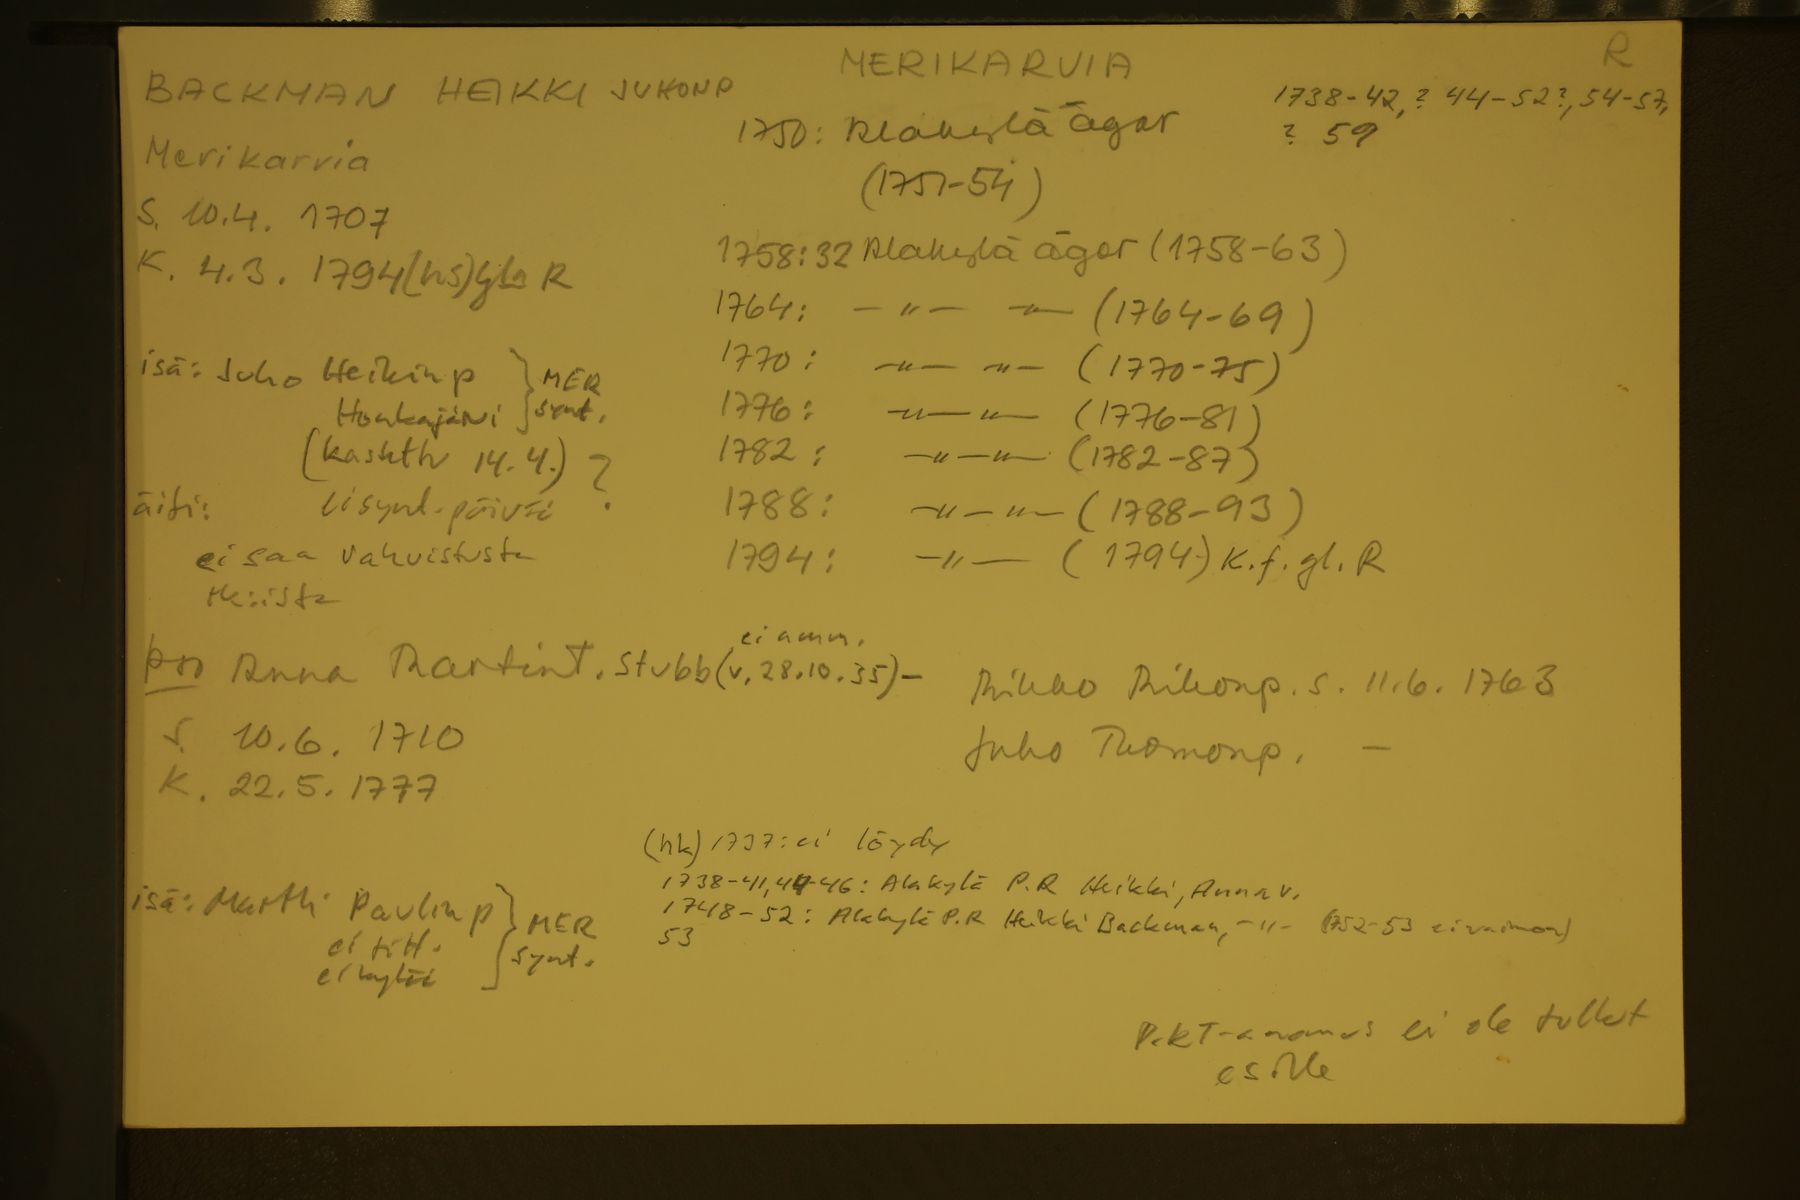 MERIKARVIA
R
BACKMAN HEIKKI JUHONP
1738-42, ? 44-52?, 54-57,
? 59
1750: Alakylä ägor
(1751-54)
Merikarvia
S. 10.4. 1707
K. 4.3. 1794 (hs) gla R
1758:32 Alakylä ägor (1758-63)
1764: -"- -"- (1764-69)
1770: -"- -"- (1770-75)
1776: -"- -"- (1776-81)
1782: -"- -"- (1782-87)
1788: -"- -"- (1788-93)
1794: -"- (1794) K.f. gl. R
isä: Juho Heikinp } MER
Honkajärvi } synt.
(kastettu 14.4.) ?
äiti: ei synt. päivää
ei saa vahvistusta
RK:ista
pso Anna Martint. Stubb (v. 28.10.35) -
ei amm.
S. 10.6. 1710
K. 22.5. 1777
Mikko Mikonp. s. 11.6. 1763
Juho Tuomonp. -
(hk) 1737: ei löydy
1738-41, 44-46: Alakylä P.R Heikki, Anna v.
1748-52: Alakylä P.R Heikki Backman, -"- (1752-53 ei vaimoa)
53
isä: Martti Paulinp } MER
ei titt. } synt.
ei kylää
P.KT-anomus ei ole tullut
esille